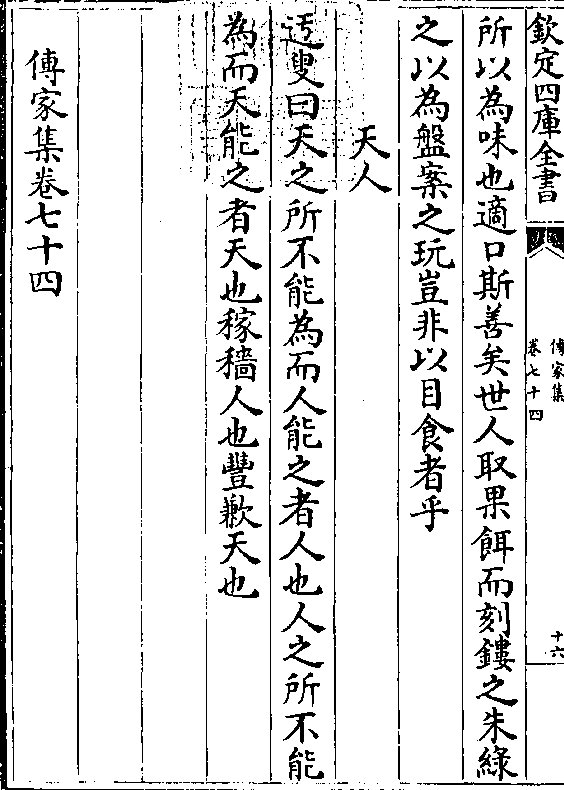 欽定四庫全書
傳家集
卷七十四
十六
所以為味也適口斯善矣世人取果餌而刻鏤之朱綠
之以為盤案之玩豈非以目食者乎
天人
迃叟曰天之所不能為而人能之者人也人之所不能
為而天能之者天也稼穡人也豐歉天也
傳家集卷七十四